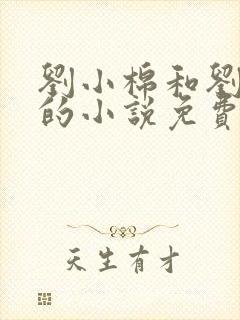 劉小棉和劉
的小說免費
天生有才